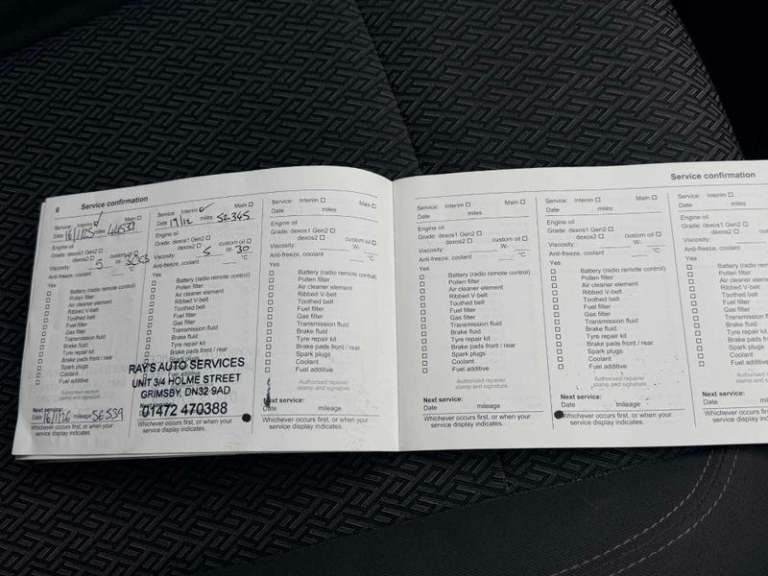 6 Service confirmation
Service: Interim ☐ Main ☐
Date 16/1/25 miles
Engine oil
Grade: dexos1 Gen2 ☐
dexos2 ☐ custom oil ☐
Viscosity: 5 W-
Anti-freeze, coolant °C
Yes
☐ Battery (radio remote control)
☐ Pollen filter
☐ Air cleaner element
☐ Ribbed V-belt
☐ Toothed belt
☐ Fuel filter
☐ Gas filter
☐ Transmission fluid
☐ Brake fluid
☐ Tyre repair kit
☐ Brake pads front / rear
☐ Spark plugs
☐ Coolant
☐ Fuel additive
Authorised repairer
stamp and signature
Next service:
Date 16/1/26 mileage 56539
Whichever occurs first, or when your
service display indicates.
Service: Interim ☐ ✓ Main ☐
Date 19/12 miles 52345
Engine oil
Grade: dexos1 Gen2 ☐
dexos2 ☐ custom oil ☐
Viscosity: 5 W- 30
Anti-freeze, coolant °C
Yes
☐ Battery (radio remote control)
☐ Pollen filter
☐ Air cleaner element
☐ Ribbed V-belt
☐ Toothed belt
☐ Fuel filter
☐ Gas filter
☐ Transmission fluid
☐ Brake fluid
☐ Tyre repair kit
☐ Brake pads front / rear
☐ Spark plugs
RAY'S AUTO SERVICES
UNIT 3/4 HOLME STREET
GRIMSBY, DN32 9AD
01472 470388
Whichever occurs first, or when your
service display indicates.
Service: Interim ☐ Main ☐
Date miles
Engine oil
Grade: dexos1 Gen2 ☐
dexos2 ☐ custom oil ☐
Viscosity: W-
Anti-freeze, coolant °C
Yes
☐ Battery (radio remote control)
☐ Pollen filter
☐ Air cleaner element
☐ Ribbed V-belt
☐ Toothed belt
☐ Fuel filter
☐ Gas filter
☐ Transmission fluid
☐ Brake fluid
☐ Tyre repair kit
☐ Brake pads front / rear
☐ Spark plugs
☐ Coolant
☐ Fuel additive
Authorised repairer
stamp and signature
Next service:
Date mileage
Whichever occurs first, or when your
service display indicates.
Service confirmation
Service: Interim ☐ Main ☐
Date miles
Engine oil
Grade: dexos1 Gen2 ☐
dexos2 ☐ custom oil ☐
Viscosity: W-
Anti-freeze, coolant °C
Yes
☐ Battery (radio remote control)
☐ Pollen filter
☐ Air cleaner element
☐ Ribbed V-belt
☐ Toothed belt
☐ Fuel filter
☐ Gas filter
☐ Transmission fluid
☐ Brake fluid
☐ Tyre repair kit
☐ Brake pads front / rear
☐ Spark plugs
☐ Coolant
☐ Fuel additive
Authorised repairer
stamp and signature
Next service:
Date mileage
Whichever occurs first, or when your
service display indicates.
Service: Interim ☐ Main ☐
Date miles
Engine oil
Grade: dexos1 Gen2 ☐
dexos2 ☐ custom oil ☐
Viscosity: W-
Anti-freeze, coolant °C
Yes
☐ Battery (radio remote control)
☐ Pollen filter
☐ Air cleaner element
☐ Ribbed V-belt
☐ Toothed belt
☐ Fuel filter
☐ Gas filter
☐ Transmission fluid
☐ Brake fluid
☐ Tyre repair kit
☐ Brake pads front / rear
☐ Spark plugs
☐ Coolant
☐ Fuel additive
Authorised repairer
stamp and signature
Next service:
Date Mileage
Whichever occurs first, or when your
service display indicates.
Service: Interim ☐
Date miles
Engine oil
Grade: dexos1 Gen2 ☐
dexos2 ☐
Viscosity:
Anti-freeze, coolant
Yes
☐ Battery (radio
☐ Pollen filter
☐ Air cleaner
☐ Ribbed V-belt
☐ Toothed belt
☐ Fuel filter
☐ Gas filter
☐ Transmission
☐ Brake fluid
☐ Tyre repair kit
☐ Brake pads
☐ Spark plugs
☐ Coolant
☐ Fuel additive
Next service:
Date
Whichever occurs
service display